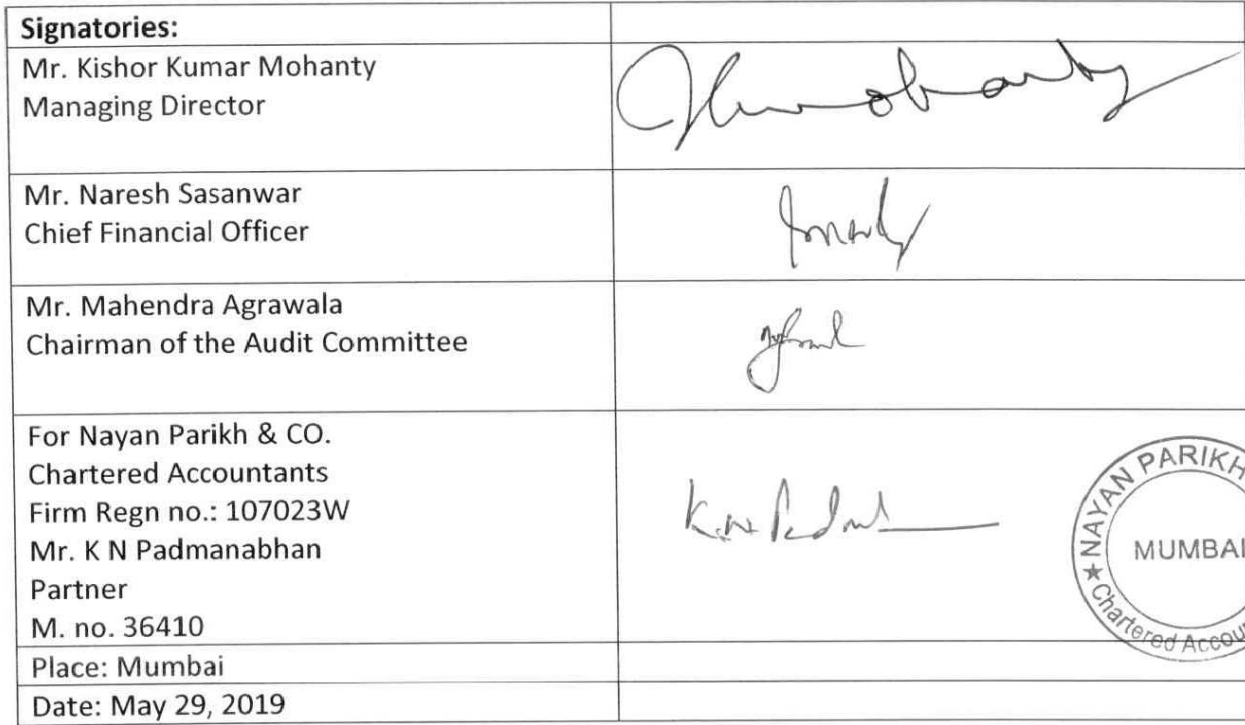 Signatories:
Mr. Kishor Kumar Mohanty
Managing Director
Mr. Naresh Sasanwar
Chief Financial Officer
Mr. Mahendra Agrawala
Chairman of the Audit Committee
For Nayan Parikh & CO.
Chartered Accountants
Firm Regn no.: 107023W
Mr. K N Padmanabhan
Partner
M. no. 36410
NAYAN PARIKH
MUMBAI
★ Chartered Accou
Place: Mumbai
Date: May 29, 2019